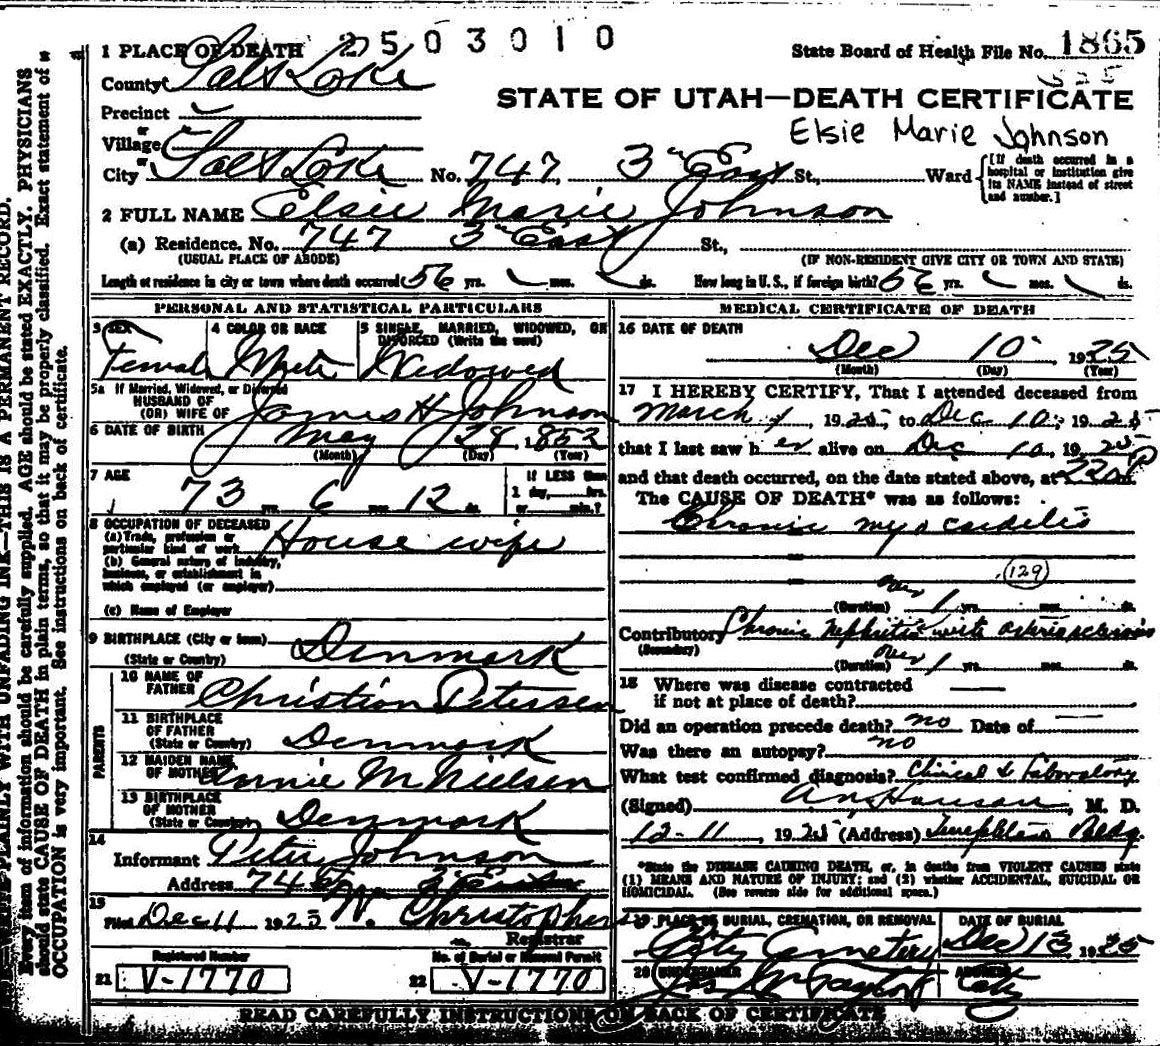 2503010
1 PLACE OF DEATH
State Board of Health File No. 1865
County Salt Lake
STATE OF UTAH—DEATH CERTIFICATE
Precinct
Elsie Marie Johnson
or
Village
or
City Salt Lake No. 747 3rd East St., Ward
[If death occurred in a
hospital or institution give
its NAME instead of street
and number.]
2 FULL NAME Elsie Marie Johnson
(a) Residence. No. 747 3rd East St.,
(USUAL PLACE OF ABODE) (IF NON-RESIDENT GIVE CITY OR TOWN AND STATE)
Length of residence in city or town where death occurred 56 yrs. mos. ds. How long in U. S., if foreign birth? 56 yrs. mos. ds.
PERSONAL AND STATISTICAL PARTICULARS
3 SEX
Female
4 COLOR OR RACE
White
5 SINGLE, MARRIED, WIDOWED, OR
DIVORCED (Write the word)
Widowed
5a If Married, Widowed, or Divorced
HUSBAND OF
(OR) WIFE OF James H Johnson
6 DATE OF BIRTH May 28, 1852
(Month) (Day) (Year)
7 AGE
73 yrs. 6 mos. 12 ds.
If LESS than
1 day, hrs.
or min.?
8 OCCUPATION OF DECEASED
(a) Trade, profession or
particular kind of work House wife
(b) General nature of industry,
business, or establishment in
which employed (or employer)
(c) Name of Employer
9 BIRTHPLACE (City or town)
(State or Country) Denmark
PARENTS
10 NAME OF
FATHER Christian Petersen
11 BIRTHPLACE
OF FATHER
(State or Country) Denmark
12 MAIDEN NAME
OF MOTHER Annie M Nielsen
13 BIRTHPLACE
OF MOTHER
(State or Country) Denmark
14
Informant Peter Johnson
Address 3 East
15
Filed Dec 11 1925 Christophers
Registrar
Registered Number
21 V-1770
No. of Burial or Removal Permit
22 V-1770
MEDICAL CERTIFICATE OF DEATH
16 DATE OF DEATH
Dec 10, 1925
(Month) (Day) (Year)
17 I HEREBY CERTIFY, That I attended deceased from
March 1, 1925, to Dec 10, 1925
that I last saw her alive on Dec 10, 1925
and that death occurred, on the date stated above, at P m.
The CAUSE OF DEATH* was as follows:
Chronic myocarditis
129
over
(Duration) 1 yrs. mos. ds.
Contributory Chronic Nephritis with arteriosclerosis
(Secondary)
over
(Duration) 1 yrs. mos. ds.
18 Where was disease contracted
if not at place of death?
Did an operation precede death? no Date of
Was there an autopsy? no
What test confirmed diagnosis? Clinical & Laboratory
(Signed) Hanson, M. D.
12-11, 1925 (Address) Templeton Bldg.
*State the DISEASE CAUSING DEATH, or, in deaths from VIOLENT CAUSES state
(1) MEANS AND NATURE OF INJURY; and (2) whether ACCIDENTAL, SUICIDAL OR
HOMICIDAL. (See reverse side for additional space.)
19 PLACE OF BURIAL, CREMATION, OR REMOVAL
City Cemetery
DATE OF BURIAL
Dec 13 1925
20 UNDERTAKER
Taylor
ADDRESS
City
READ CAREFULLY INSTRUCTIONS ON BACK OF CERTIFICATE
WRITE PLAINLY WITH UNFADING INK—THIS IS A PERMANENT RECORD.
Every item of information should be carefully supplied. AGE should be stated EXACTLY. PHYSICIANS
should state CAUSE OF DEATH in plain terms, so that it may be properly classified. Exact statement of
OCCUPATION is very important. See instructions on back of certificate.